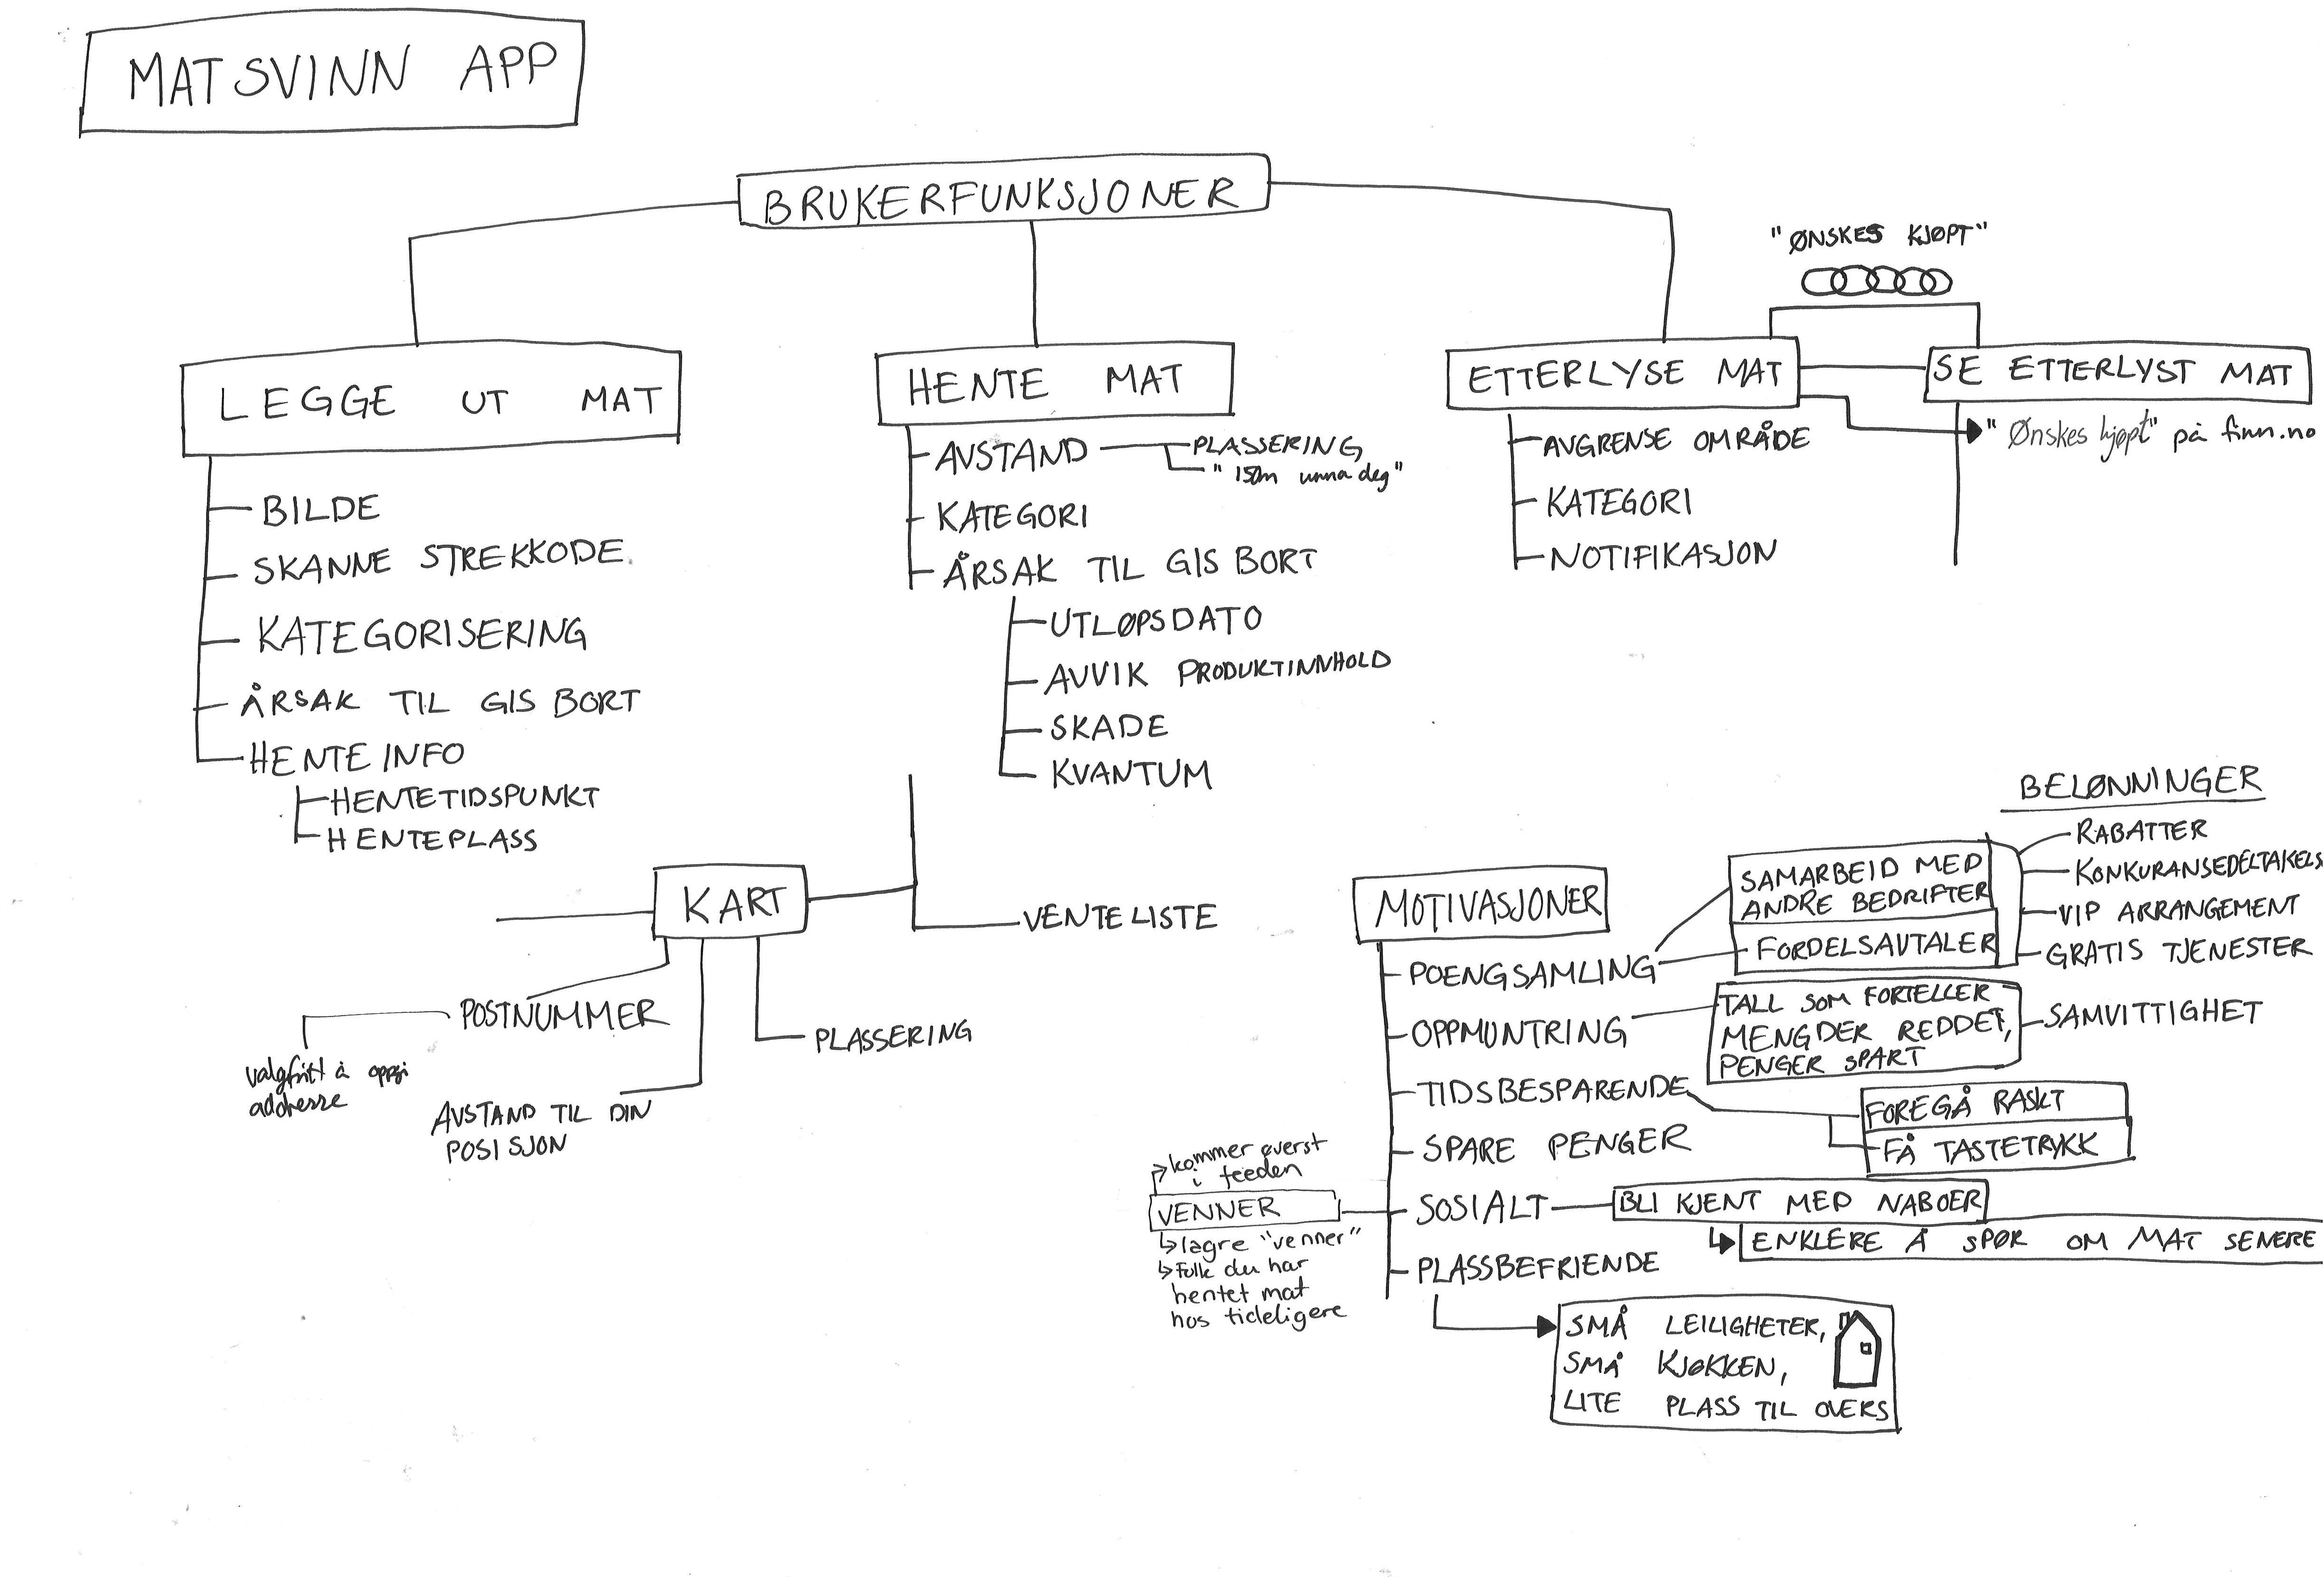 MATSVINN APP
BRUKERFUNKSJONER
"ØNSKES KJØPT"
LEGGE UT MAT
BILDE
SKANNE STREKKODE.
KATEGORISERING
ÅRSAK TIL GIS BORT
HENTE INFO
HENTETIDSPUNKT
HENTEPLASS
HENTE MAT
AVSTAND
PLASSERING
"150m unna deg"
KATEGORI
ÅRSAK TIL GIS BORT
UTLØPSDATO
AVVIK PRODUKTINNHOLD
SKADE
KVANTUM
ETTERLYSE MAT
AVGRENSE OMRÅDE
KATEGORI
NOTIFIKASJON
SE ETTERLYST MAT
"Ønskes kjøpt" på finn.no
KART
VENTELISTE
POSTNUMMER
valgfritt å oppgi
addresse
AVSTAND TIL DIN
POSISJON
PLASSERING
MOTIVASJONER
POENGSAMLING
SAMARBEID MED
ANDRE BEDRIFTER
FORDELSAVTALER
BELØNNINGER
RABATTER
KONKURANSEDELTAKELS
VIP ARRANGEMENT
GRATIS TJENESTER
OPPMUNTRING
TALL SOM FORTELLER
MENGDER REDDET,
PENGER SPART
SAMVITTIGHET
TIDSBESPARENDE
FOREGÅ RASKT
FÅ TASTETRYKK
SPARE PENGER
SOSIALT
BLI KJENT MED NABOER
ENKLERE Å SPØR OM MAT SENERE
kommer øverst
i feeden
VENNER
lagre "venner"
Folk du har
hentet mat
hos tideligere
PLASSBEFRIENDE
SMÅ LEILIGHETER,
SMÅ KJØKKEN,
LITE PLASS TIL OVERS